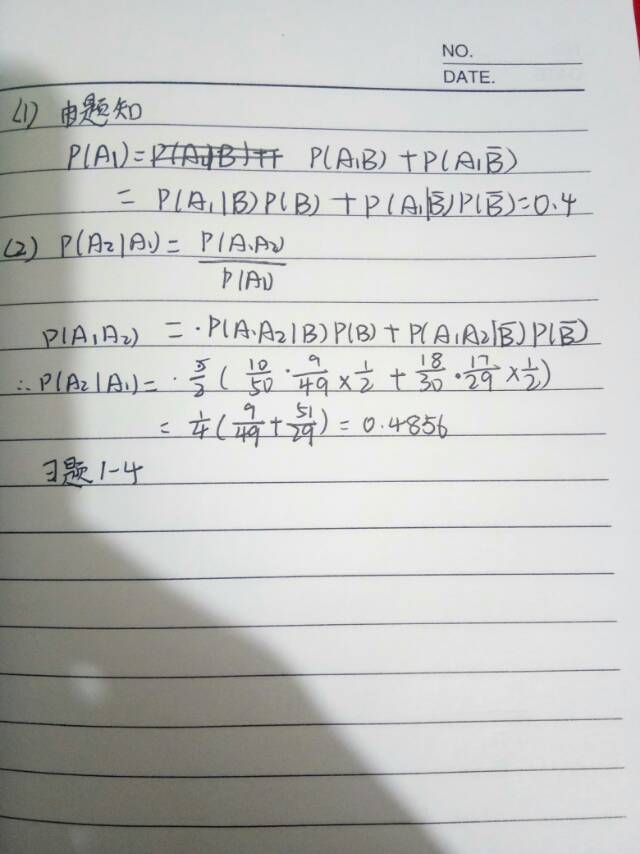 NO.
DATE.
(1) 由题知
P(A₁)= P(A₁B)+P(A₁B̄)
= P(A₁|B)P(B)+P(A₁|B̄)P(B̄)=0.4
(2) P(A₂|A₁)= P(A₁A₂)/P(A₁)
P(A₁A₂) = P(A₁A₂|B)P(B)+P(A₁A₂|B̄)P(B̄)
∴P(A₂|A₁)= 5/2 ( 10/50 · 9/49 × 1/2 + 18/30 · 17/29 × 1/2 )
= 1/4 ( 9/49 + 51/29 ) = 0.4856
习题1-4